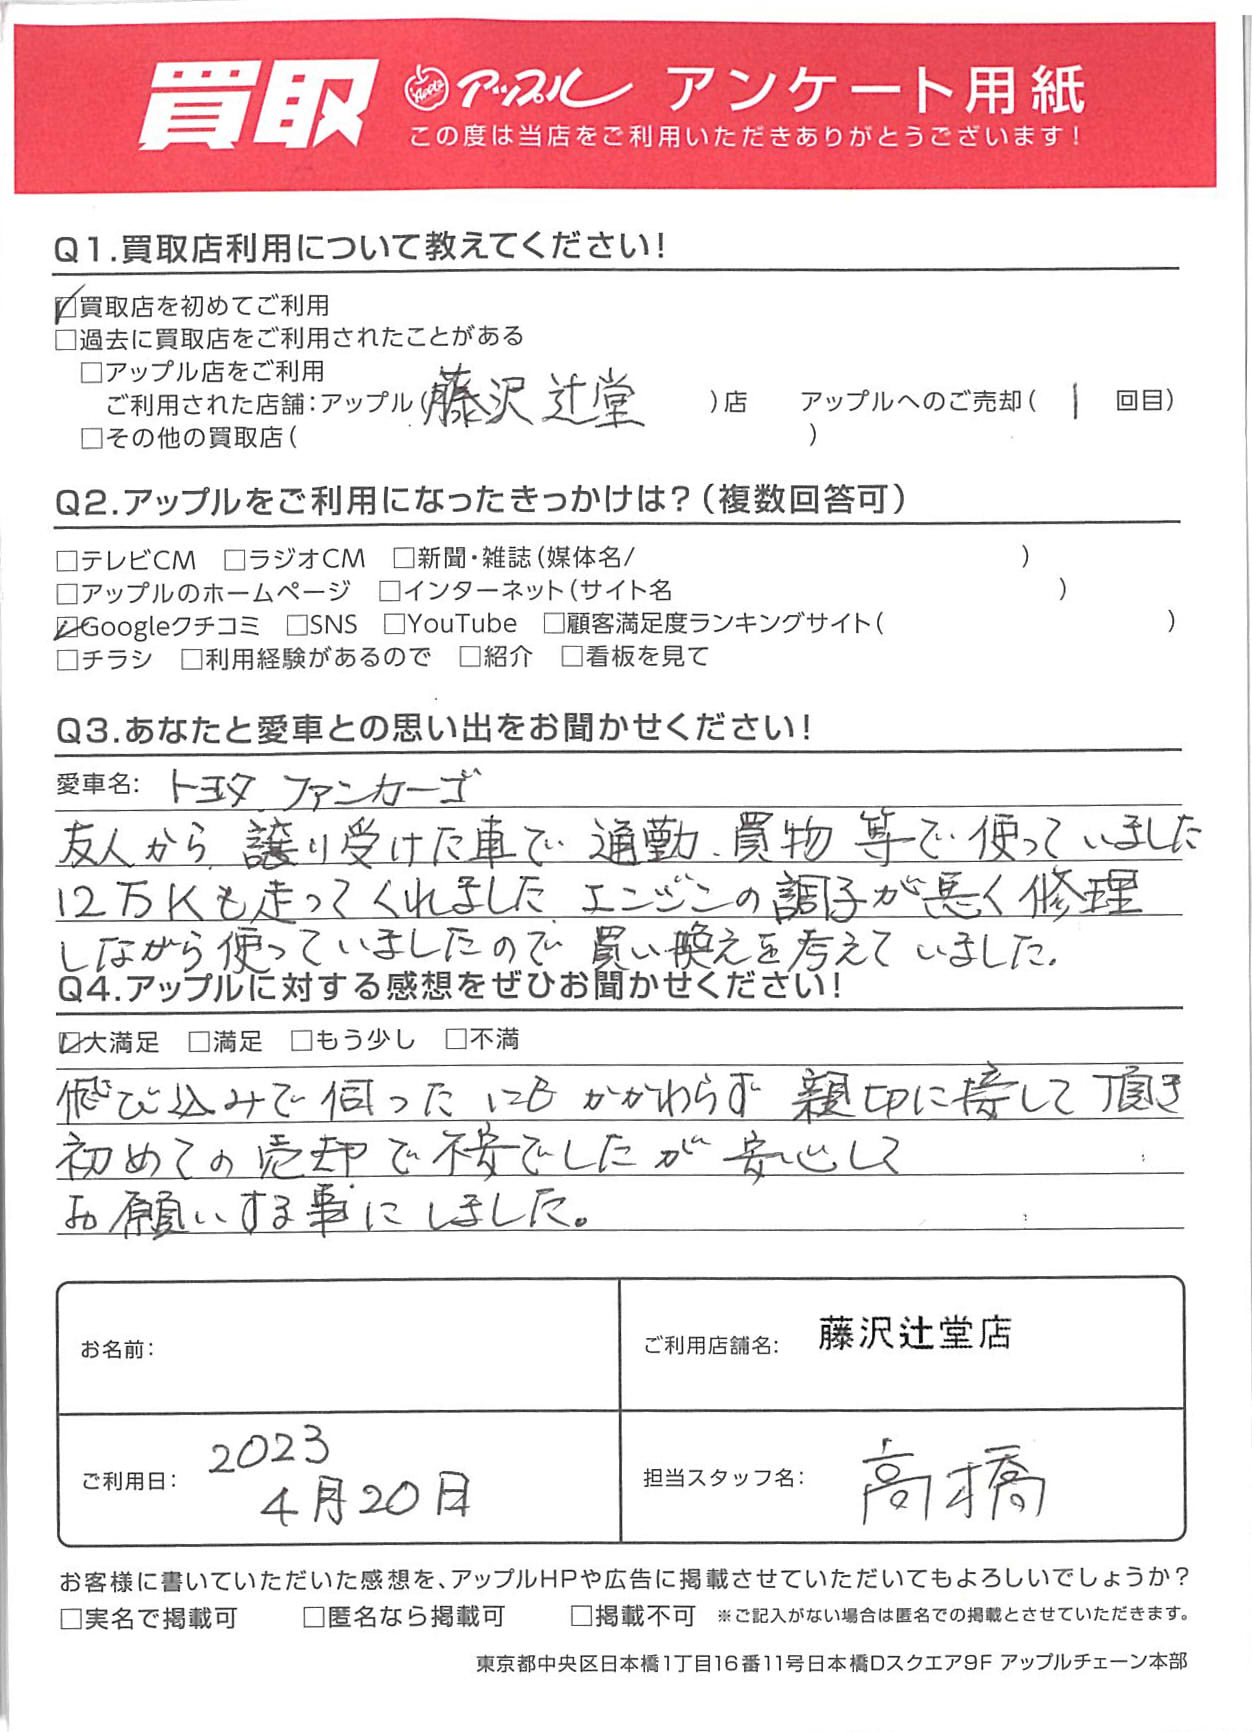 買取 Apple アップル アンケート用紙
この度は当店をご利用いただきありがとうございます!
Q1.買取店利用について教えてください!
☑買取店を初めてご利用
□過去に買取店をご利用されたことがある
□アップル店をご利用
ご利用された店舗:アップル(藤沢辻堂 )店 アップルへのご売却( 1 回目)
□その他の買取店( )
Q2.アップルをご利用になったきっかけは?(複数回答可)
□テレビCM □ラジオCM □新聞・雑誌(媒体名/ )
□アップルのホームページ □インターネット(サイト名 )
☑Googleクチコミ □SNS □YouTube □顧客満足度ランキングサイト( )
□チラシ □利用経験があるので □紹介 □看板を見て
Q3.あなたと愛車との思い出をお聞かせください!
愛車名: トヨタ ファンカーゴ
友人から譲り受けた車で 通勤、買物 等で使っていました
12万Kも走ってくれました エンジンの調子が悪く修理
しながら使っていましたので 買い換えを考えていました。
Q4.アップルに対する感想をぜひお聞かせください!
☑大満足 □満足 □もう少し □不満
飛び込みで伺ったにもかかわらず 親切に接して頂き
初めての売却で不安でしたが 安心して
お願いする事にしました。
お名前: ご利用店舗名: 藤沢辻堂店
ご利用日: 2023 4月20日 担当スタッフ名: 高橋
お客様に書いていただいた感想を、アップルHPや広告に掲載させていただいてもよろしいでしょうか?
□実名で掲載可 □匿名なら掲載可 □掲載不可 ※ご記入がない場合は匿名での掲載とさせていただきます。
東京都中央区日本橋1丁目16番11号日本橋Dスクエア9F アップルチェーン本部